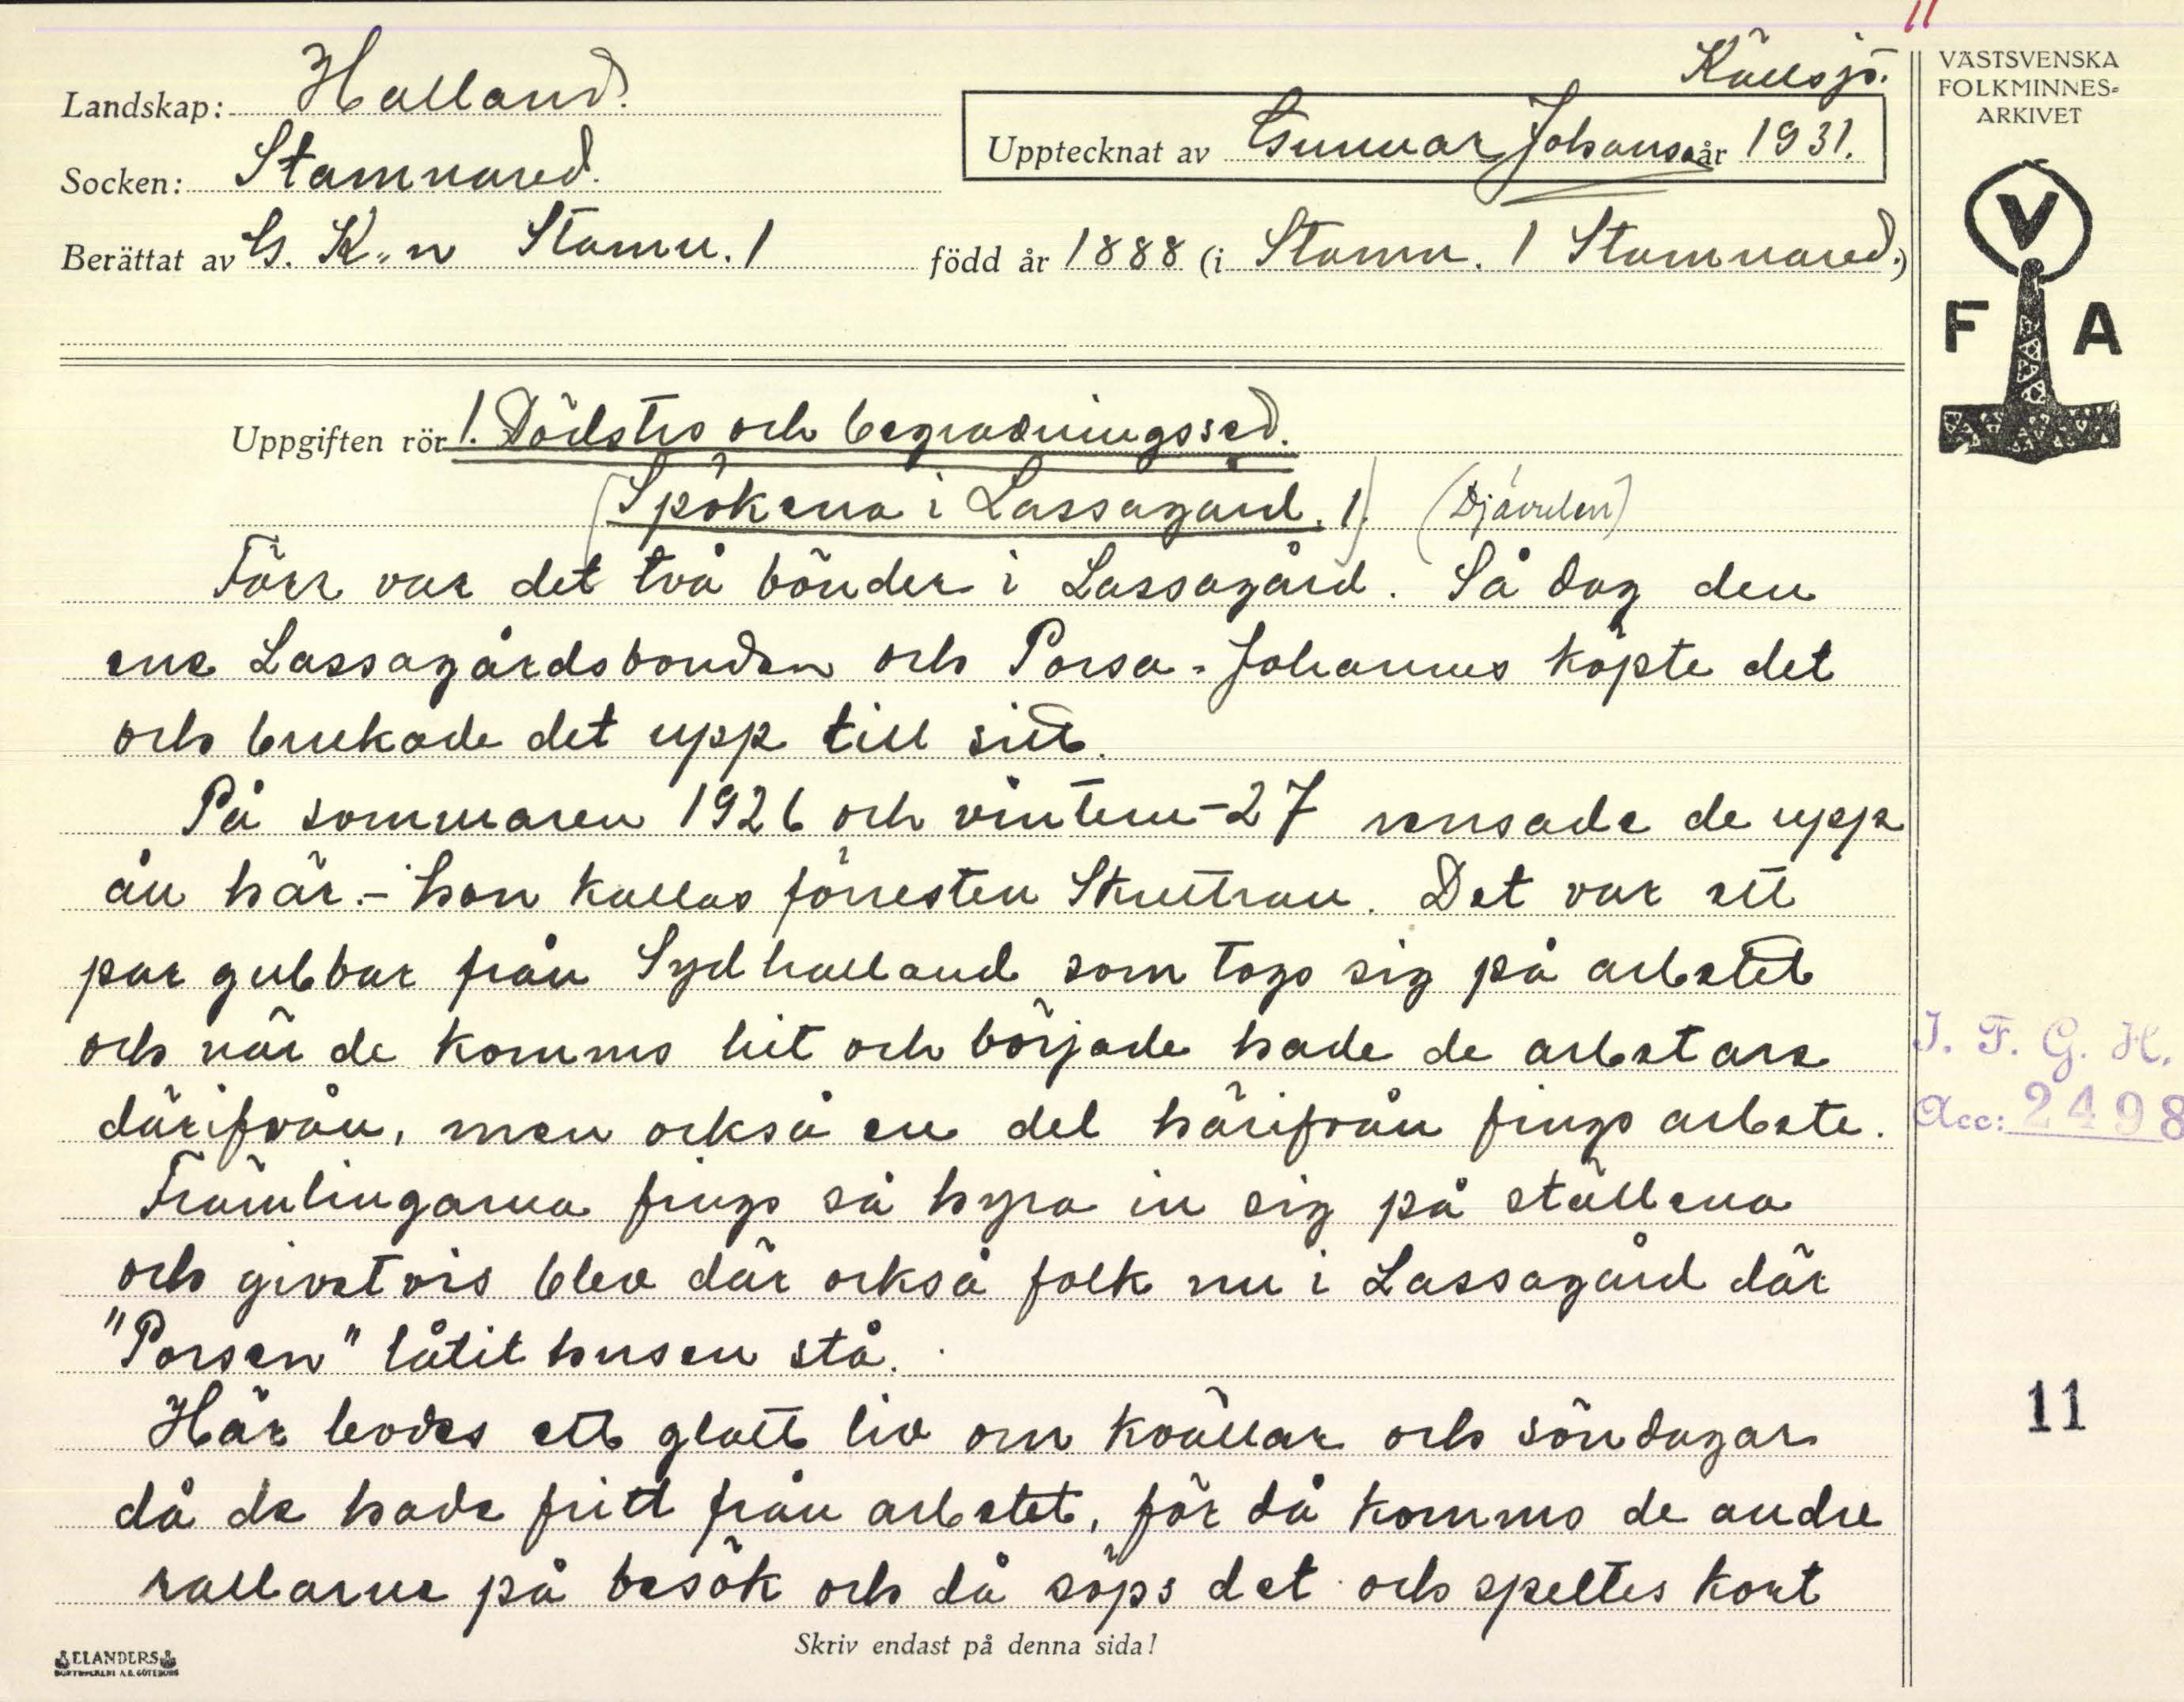 11
VÄSTSVENSKA
FOLKMINNES-
ARKIVET
Källsjö.
Landskap: Halland.
Upptecknat av Gunnar Johansson år 1931.
Socken: Stamnared.
Berättat av G. K-n Stamn. 1 född år 1888 (i Stamn. 1 Stamnared.)
V
F A
Uppgiften rör 1. Dödstro och begravningssed.
(Spökena i Lassagård. 1.) (Djävulen)
Förr var det två bönder i Lassagård. Så dog den
ene Lassagårdsbonden och Porsa-Johannes köpte det
och brukade det upp till sitt.
På sommaren 1926 och vintern -27 rensade de upp
ån här. - hon kallas förresten Skuttran. Det var ett
par gubbar från Sydhalland som togo sig på arbetet
och när de kommo hit och började hade de arbetare
därifrån, men också en del härifrån fingo arbete.
Främlingarna fingo så hyra in sig på ställena
och givetvis blev där också folk nu i Lassagård där
"Porsen" låtit husen stå.
Här levdes ett glatt liv om kvällar och söndagar
då de hade fritt från arbetet, för då kommo de andre
rallarne på besök och då söps det och speltes kort
I. F. G. H.
Acc: 2498
11
Skriv endast på denna sida!
ELANDERS
BOKTRYCKERI A.B. GÖTEBORG